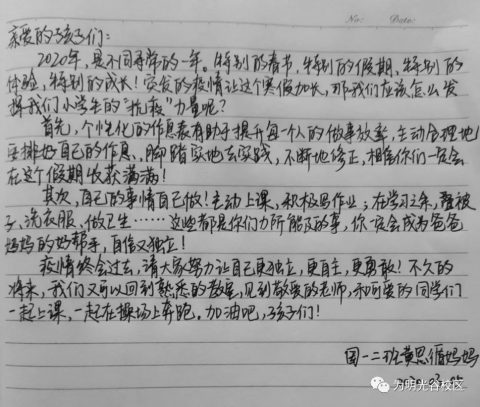 No:        Date:
亲爱的孩子们:
2020年,是不同寻常的一年。特别的春节,特别的假期、特别的
体验,特别的成长!突发的疫情让这个寒假加长,那我们应该怎么发
挥我们小学生的"抗疫"力量呢?
首先,个性化的作息表有助于提升每个人的做事效率,主动合理地
安排好自己的作息、脚踏实地去实践,不断地修正,相信你们一定会
在这个假期收获满满!
其次,自己的事情自己做!主动上课、积极写作业;在学习之余,叠被
子、洗衣服、做卫生……这些都是你们力所能及的事,你一定会成为爸爸
妈妈的好帮手,自信又独立!
疫情终会过去,请大家努力让自己更独立,更自主,更勇敢!不久的
将来,我们又可以回到熟悉的教室,见到敬爱的老师,和可爱的同学们
一起上课,一起在操场上奔跑。加油吧,孩子们!
国一二班黄思循妈妈
为明光谷校区